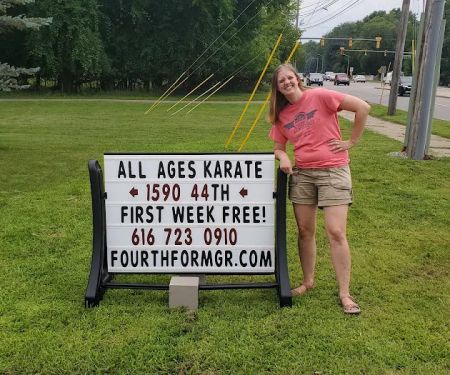 ALL AGES KARATE
← 1590 44TH →
FIRST WEEK FREE!
616 723 0910
FOURTHFORMGR.COM